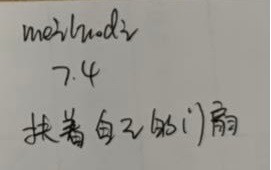 7.4
扶着自己的门扇